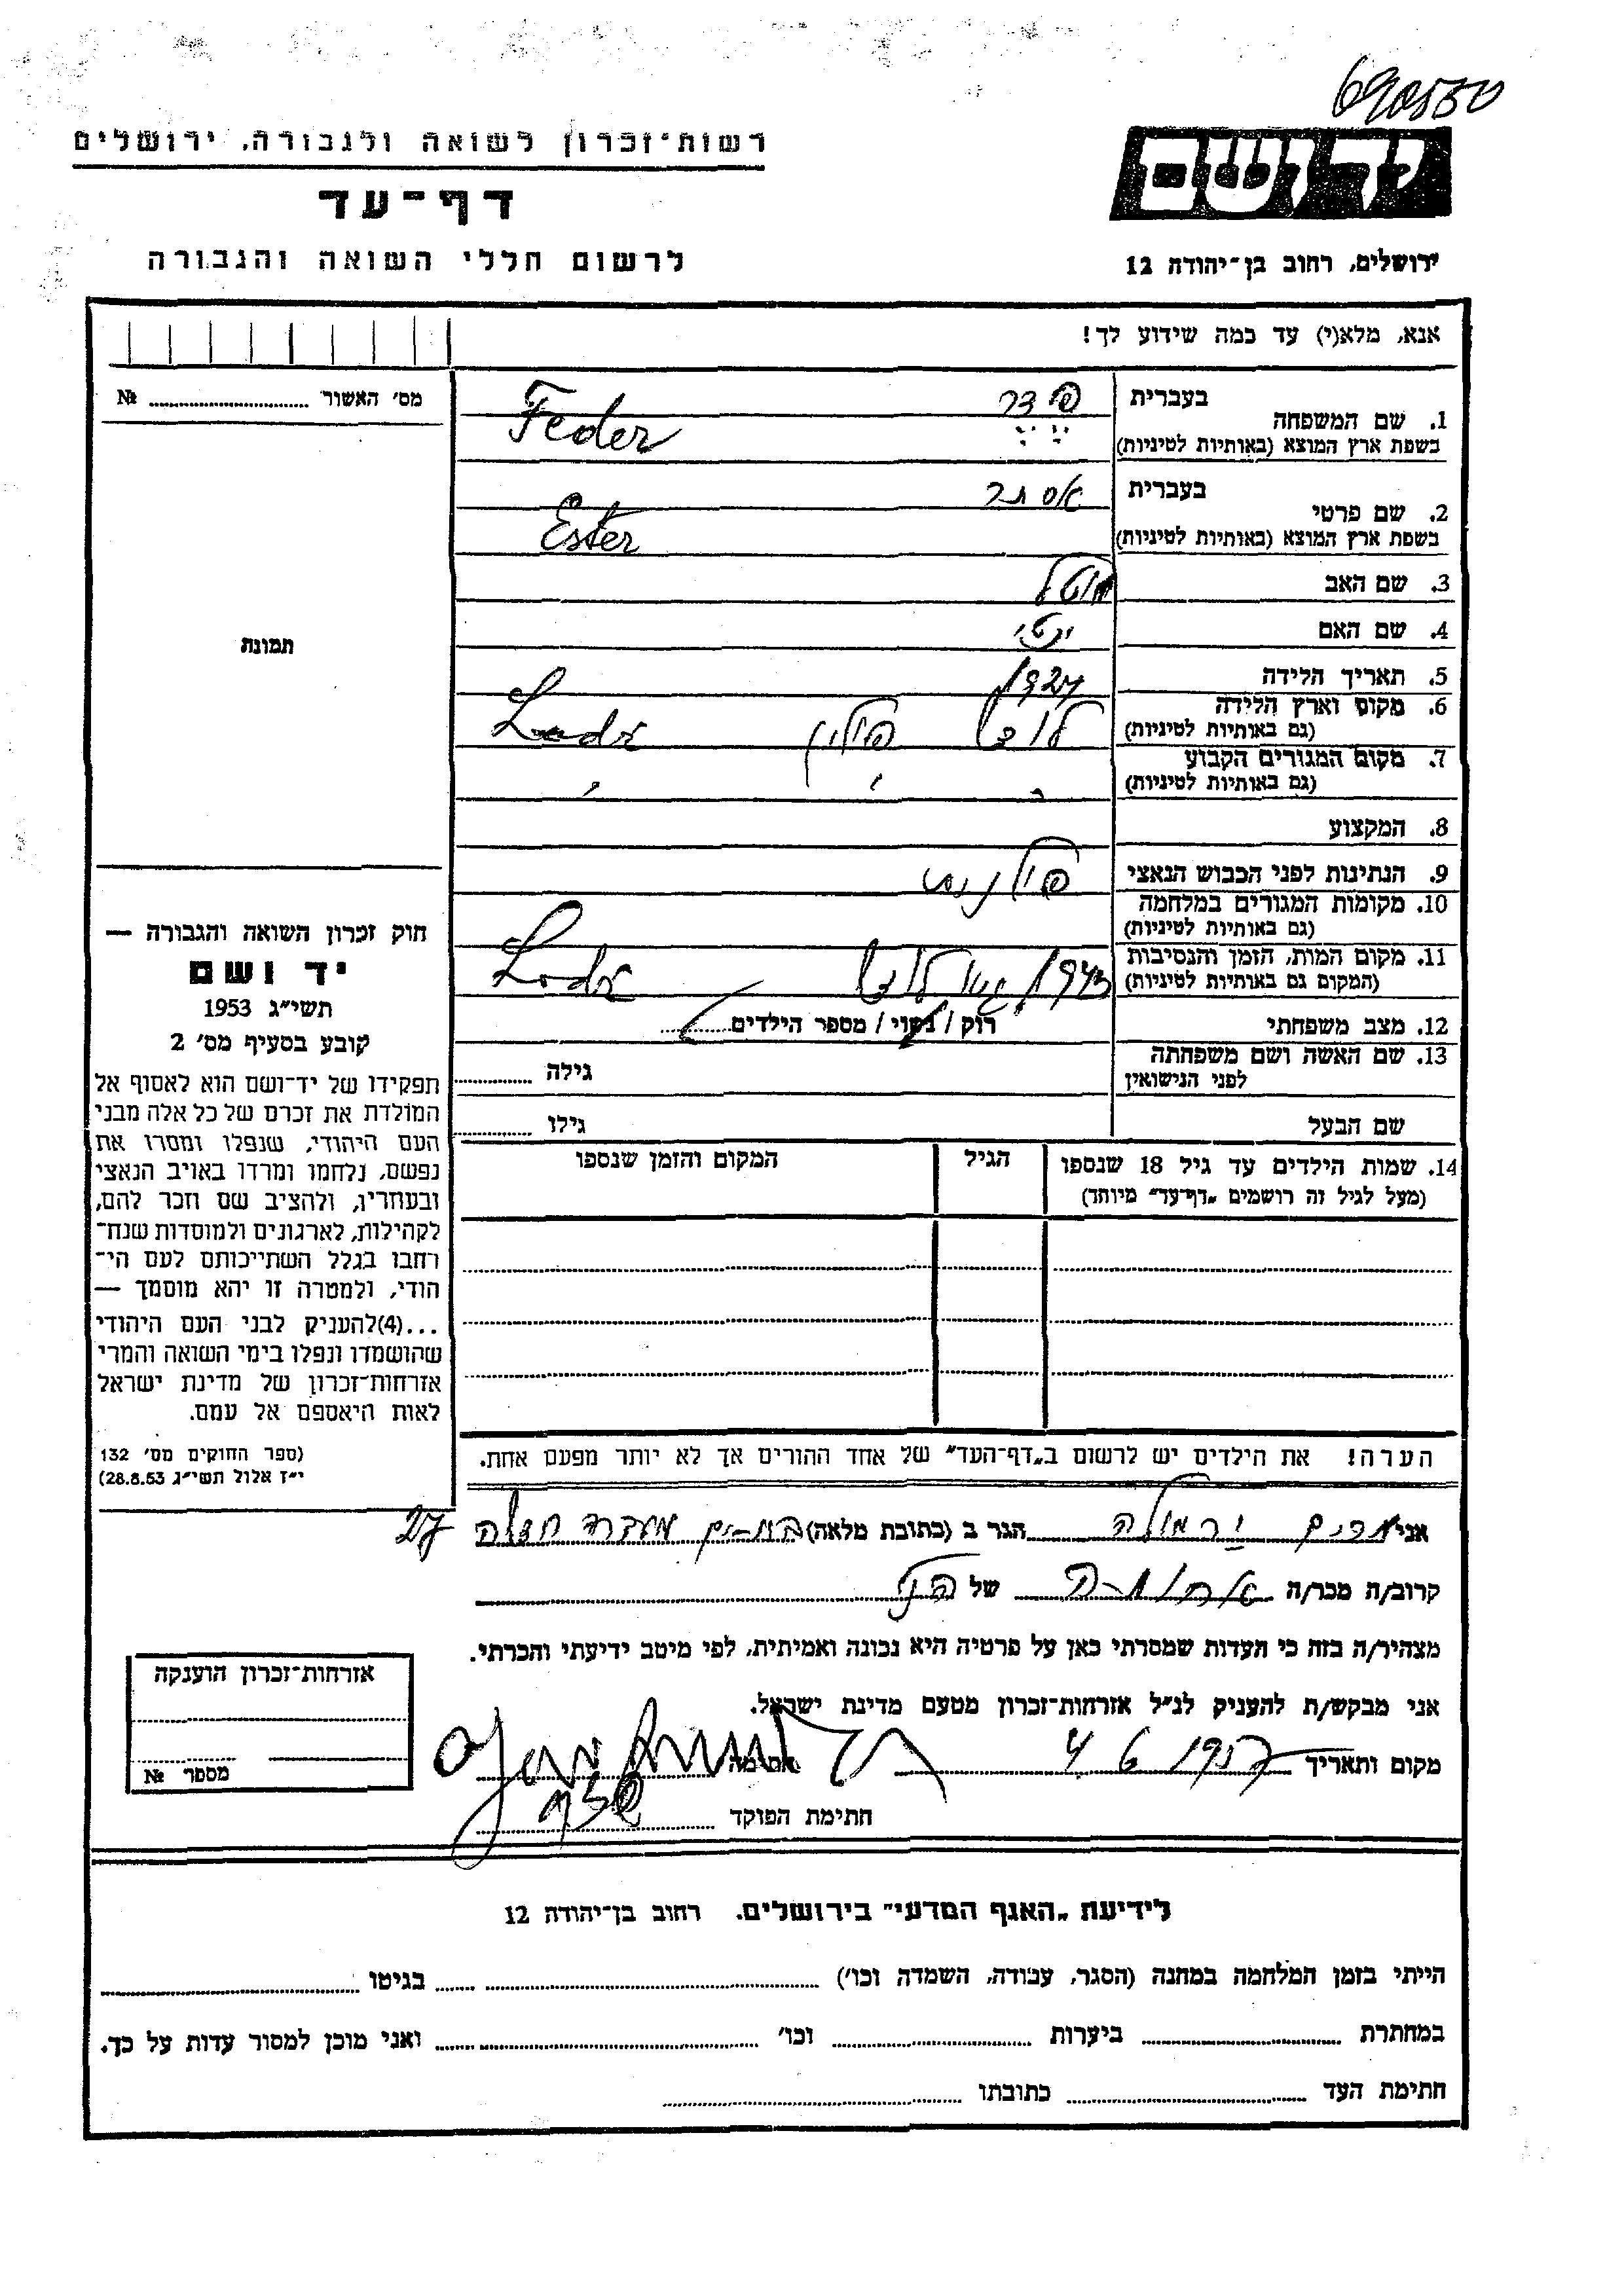 690550
רשות־זכרון לשואה ולגבורה, ירושלים
דף־עד
לרשום חללי השואה והגבורה
יד ושם
ירושלים, רחוב בן־יהודה 12
אנא, מלא(י) עד כמה שידוע לך!
מס׳ האשור № 
תמונת
חוק זכרון השואה והגבורה —
יד ושם
תשי״ג 1953
קובע בסעיף מס׳ 2
תפקידו של יד־ושם הוא לאסוף אל
המולדת את זכרם של כל אלה מבני
העם היהודי, שנפלו ומסרו את
נפשם, נלחמו ומרדו באויב הנאצי
ובעוזריו, ולהציב שם וזכר להם,
לקהילות, לארגונים ולמוסדות שנח־
רחבו בגלל השתייכותם לעם הי־
הודי, ולמטרה זו יהא מוסמך —
...(4)להעניק לבני העם היהודי
שהושמדו ונפלו בימי השואה והמרי
אזרחות־זכרון של מדינת ישראל
לאות היאספם אל עמם.
(ספר החוקים מס׳ 132
י״ז אלול תשי״ג 28.8.53)
1. שם המשפחה בעברית פדר
בשפת ארץ המוצא (באותיות לטיניות) Feder
2. שם פרטי בעברית אסתר
בשפת ארץ המוצא (באותיות לטיניות) Ester
3. שם האב
4. שם האם
5. תאריך הלידה 1927
6. מקום וארץ הלידה לודז פולין Lodz
(גם באותיות לטיניות)
7. מקום המגורים הקבוע
(גם באותיות לטיניות)
8. המקצוע
9. הנתינות לפני הכבוש הנאצי פולנית
10. מקומות המגורים במלחמה
(גם באותיות לטיניות)
11. מקום המות, הזמן והנסיבות 1943 גטו לודז Lodz
(המקום גם באותיות לטיניות)
12. מצב משפחתי רוק / נשוי / מספר הילדים
13. שם האשה ושם משפחתה גילה
לפני הנישואין
שם הבעל גילו
14. שמות הילדים עד גיל 18 שנספו הגיל המקום והזמן שנספו
(מעל לגיל זה רושמים „דף־עד״ מיוחד)
הערה! את הילדים יש לרשום ב„דף־העד״ של אחד ההורים אך לא יותר מפעם אחת.
אני מרים הגר ב (כתובת מלאה) בת-ים 27
קרוב/ה מכר/ה אחות-ה של הנ״ל
מצהיר/ה בזה כי העדות שמסרתי כאן על פרטיה היא נכונה ואמיתית, לפי מיטב ידיעתי והכרתי.
אני מבקש/ת להעניק לנ״ל אזרחות־זכרון מטעם מדינת ישראל.
מקום ותאריך 4 6 1957
חתימת הפוקד
אזרחות־זכרון הוענקה
מספר №
לידיעת „האגף המדעי״ בירושלים. רחוב בן־יהודה 12
הייתי בזמן המלחמה במחנה (הסגר, עבודה, השמדה וכו׳) בגיטו
במחתרת ביערות וכו׳ ואני מוכן למסור עדות על כך.
חתימת העד כתובתו